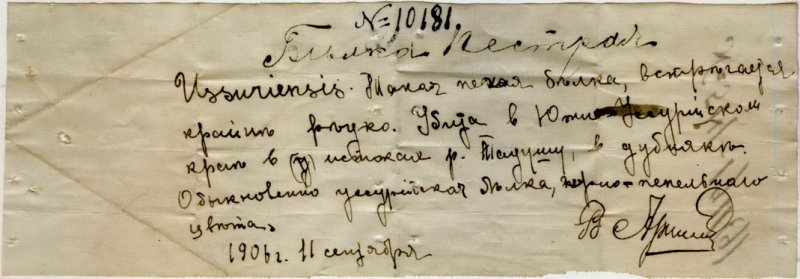 № 10181.
Бѣлка Пестрая
Ussuriensis. Такая пегая бѣлка, встрѣчается
крайнѣ рѣдко. Убита в Южно-Уссурійском
краѣ в (у) истокая р. Тадушу, в дубнякѣ.
Обыкновенно уссурійская бѣлка, черно-пепельнаго
цвѣта.
1906 г. 11 сентября
В Арсе